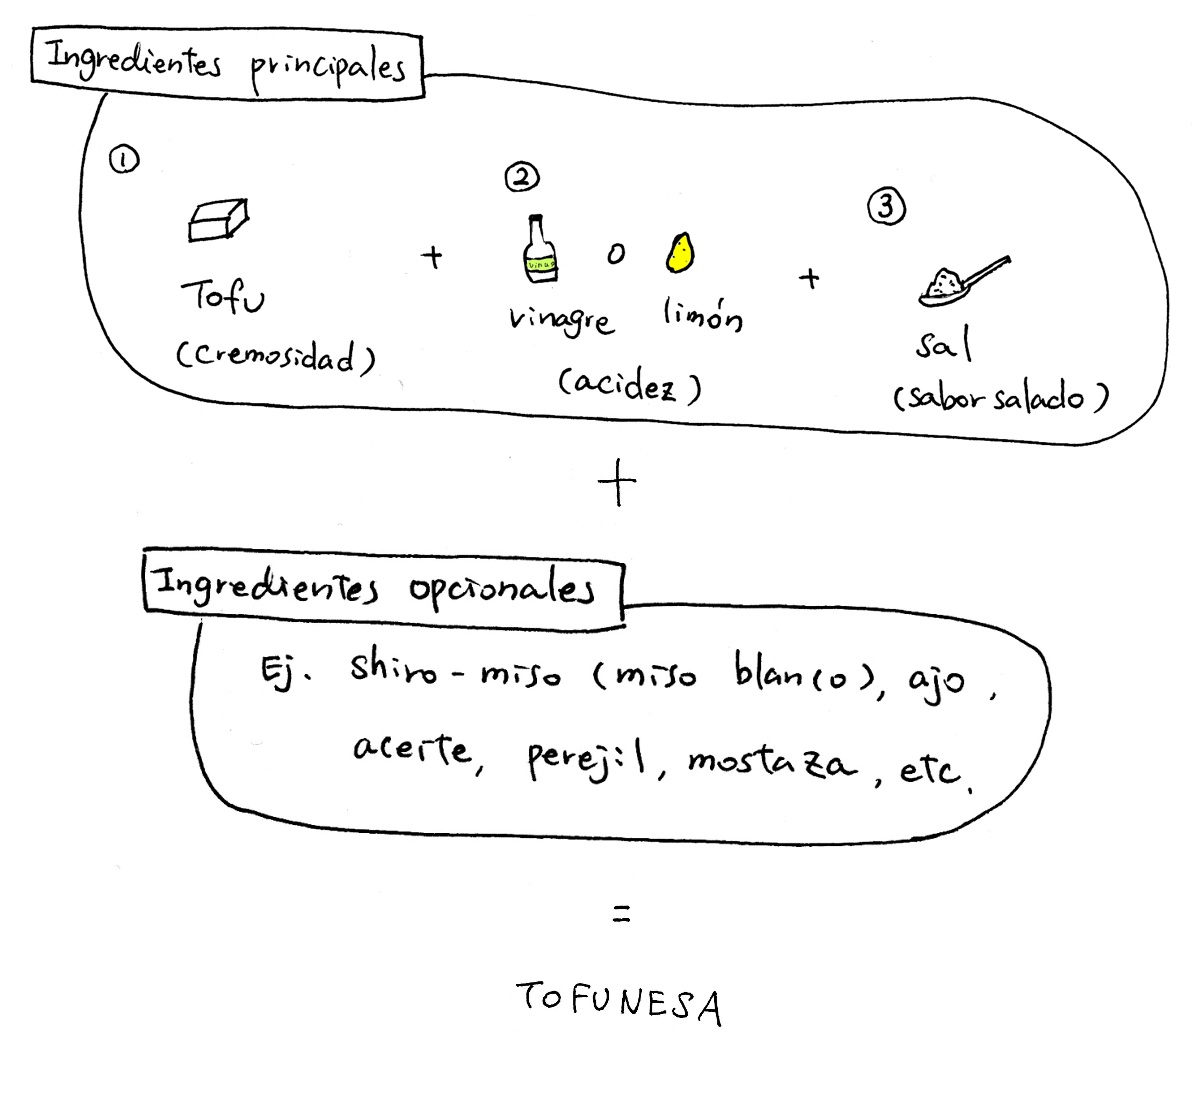 Ingredientes principales
① ② ③
+ o +
Tofu vinagre limón sal
(cremosidad) (acidez) (sabor salado)
+
Ingredientes opcionales
Ej. shiro-miso (miso blanco), ajo,
aceite, perejil, mostaza, etc.
=
TOFUNESA